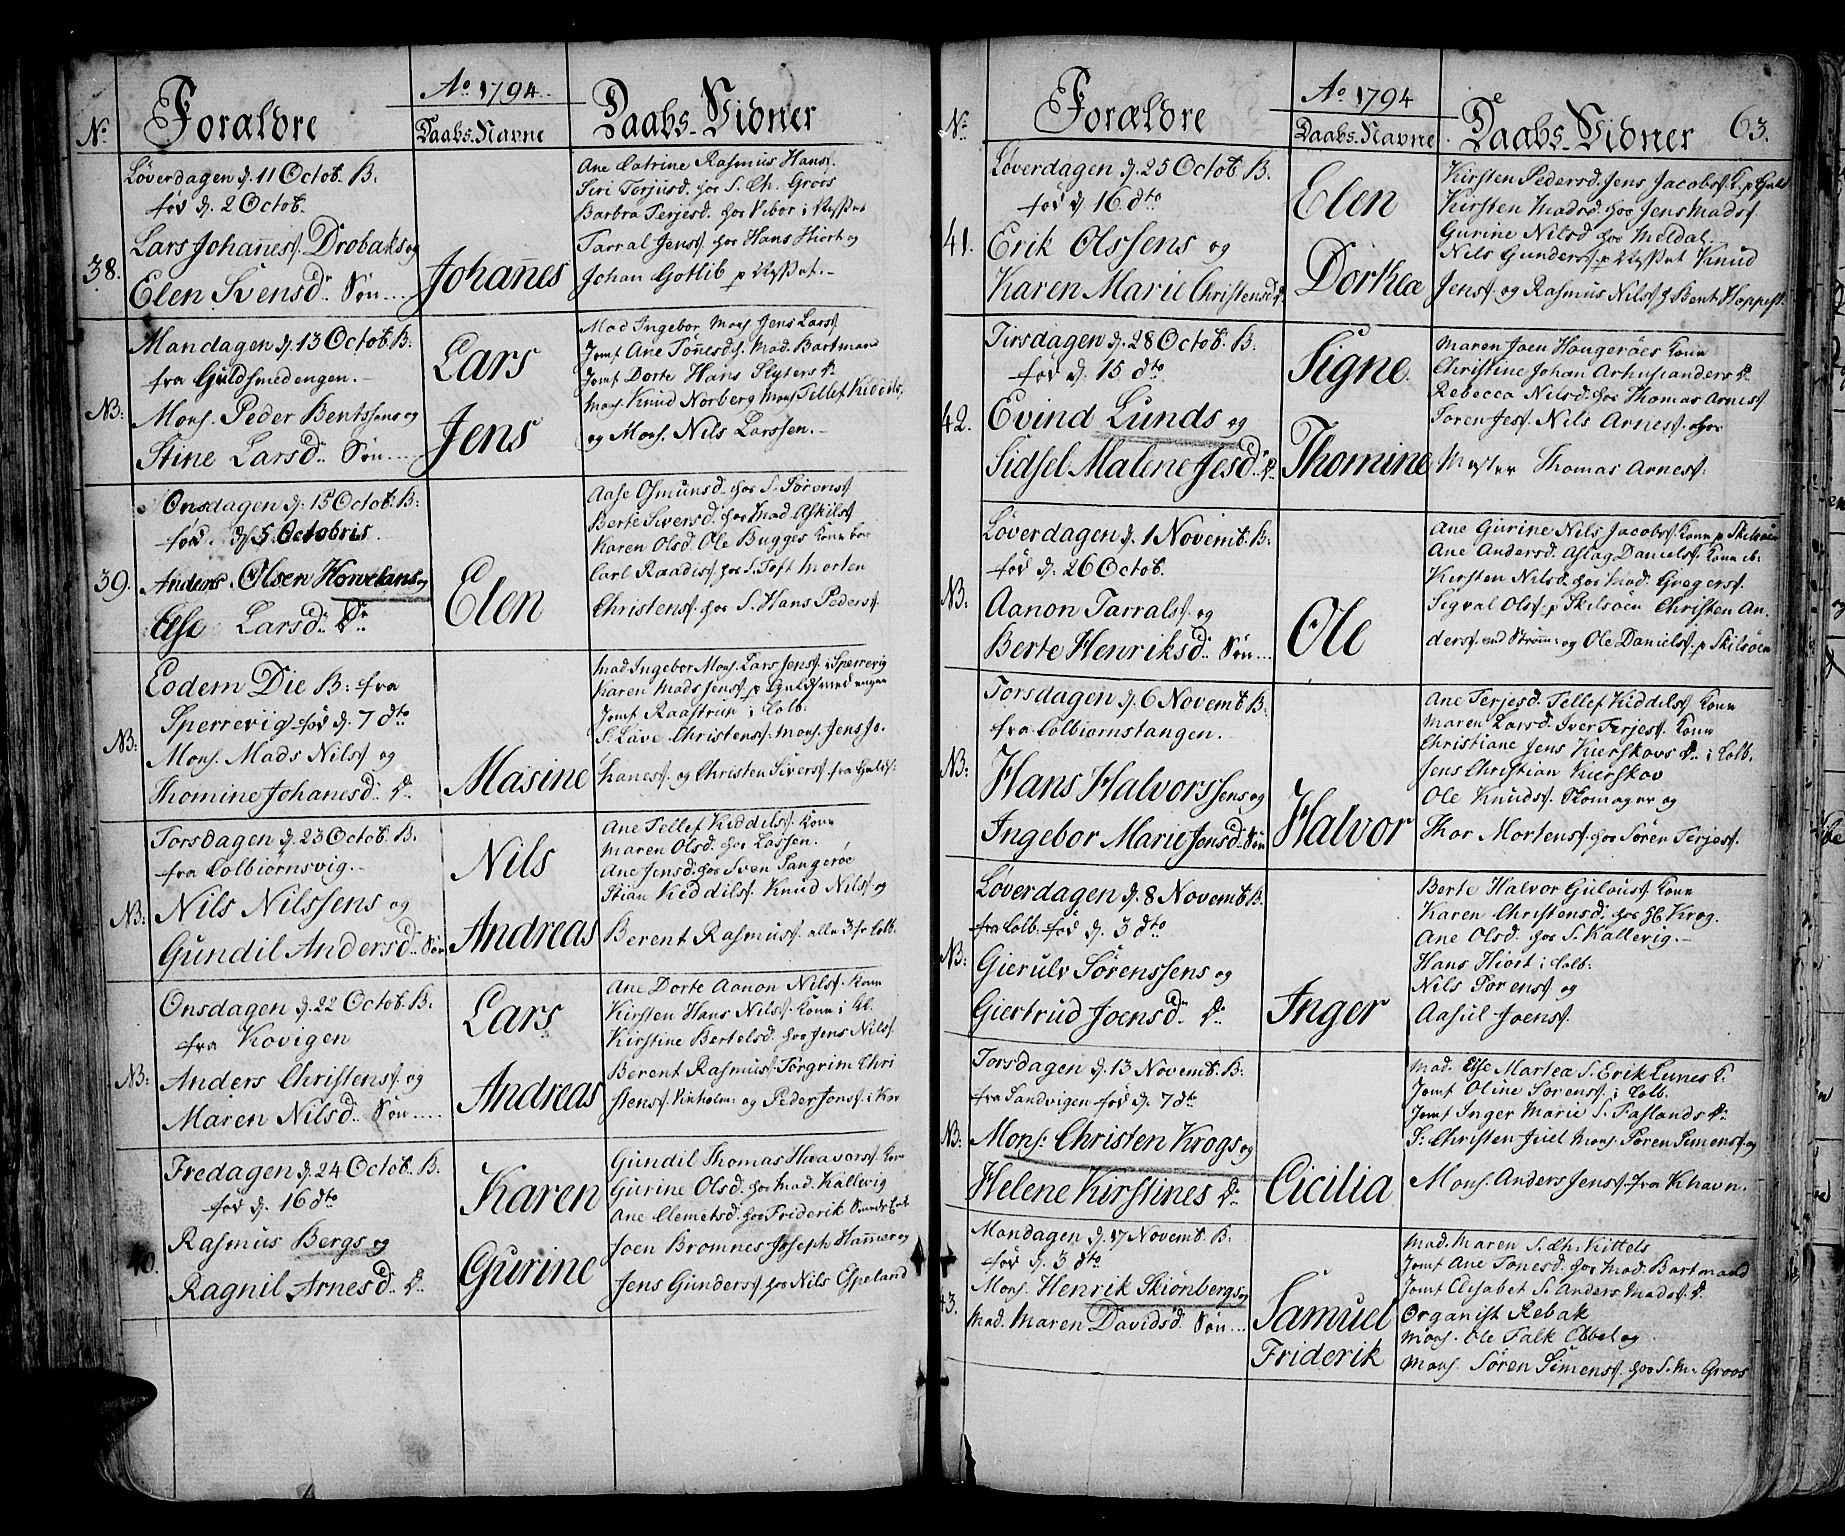 Nº
Forældre
Aº 1794
Daabs-Navne
Daabs-Vidner
Løverdagen d. 11 Octob. B.
fød d. 2 Octob.
38.
Lars Johanesſ. Drobaks og
Elen Svensd. Søn
Johañes
Ane Catrine Rasmus Hansſ.
Siri Torjusd. hos S. Ch. Groos
Barbra Terjesd. hos Vibor i
Tarral Jensſ. hos Hans Hiort og
Johan Gotlib p
Mandagen d. 13 Octob. B.
fra Guldsmedengen.
NB:
Mons. Peder Bentssens og
Stine Larsd. Søn
Lars
Jens
Mad Ingebor Mons. Jens Larsſ
Jomf Ane Tønesd. h. Mad. Bartmand
Jomf Dorte Hans Slyters D.
Mons. Knud Norberg Mons Tellef Kiddils.
og Mons. Nils Larssen.
Onsdagen d. 15 Octob. B:
fød d. 5 Octobris
39.
Anders Olsen Horvekans og
Else Larsd. Dr.
Elen
Aase Osmunsd. hos S. Sørensſ
Berte Sivensd. hos Mad Askilsſ
Karen Olsd. Ole Bugges Kone boe
Carl Raadisſ. hos S. Tost Morten
Christensſ. hos S. Hans Pedersſ.
Eodem Die B: fra
Sperrevig fød d. 7 dto
NB:
Mons. Mads Nilsſ og
Thomine Johanesd. D.
Masine
Mad Ingebor Mons. Lars Jensſ. Sperrevig
Karen Mads Jensſ. p Guldsmedengen
Jomf Raastrup i Colb.
S. Lave Christensſ. Mons. Jens Jo.
hanesſ. og Christen Siversſ fra Guldſ.
Torsdagen d. 23 Octob. B.
fra Colbiørnsvig.
NB:
Nils Nilssens og
Gundil Andersd. Søn
Nils
Andreas
Ane Tellef Kiddilsſ. Kone
Maren Olsd. hos Lassen.
Ane Jensd. hos Sven Sangerøe
Stian Kiddilsſ. Knud Nilsſ og
Berent Rasmusſ. alle 3 fr Colb.
Onsdagen d. 22 Octob. B.
fra Kovigen
NB:
Anders Christensſ. og
Maren Nilsd. Søn
Lars
Andreas
Ane Dorte Aanon Nilsſ. Kone
Kirsten Hans Nilsſ. Kone i
Kirstine Bertelsd. hos Jens Nilsſ.
Berent Rasmusſ. Torgrim Chri
stensſ. og Peder Jensſ. i Kov
Fredagen d. 24 Octob. B.
fød d. 16 dto
40.
Rasmus Bergs og
Ragnil Arnesd. D.
Karen
Gurine
Gundil Thomas Haavorsſ. Kon
Gurine Olsd. hos Mad. Kallevig
Ane Clemetsd. hos Friderik
Joen Bromnes Joseph Hamer og
Jens Gundersſ hos Nils Espeland
Nº
Forældre
Aº 1794
Daabs-Navne
Daabs-Vidner
63.
Løverdagen d. 25 Octob. B.
fød d. 16 dto
41.
Erik Olssens og
Karen Marie Christensd. D.
Elen
Dorthea
Kirsten Pedersd. Jens Jacobsſ K. p Guld
Kirsten Madsd. hos Jens Madsſ
Gurine Nilsd. hos Meldal
Nils Gundersſ. p Knud
Jensſ. og Rasmus Nilsſ h Bent Hoppest.
Tirsdagen d. 28 Octob. B.
fød d. 15 dto
42.
Evind Lunds og
Sidsel Malene Jesd. D.
Signe
Thomine
Maren Joen Haugerøes Kone
Christine Johan D.
Rebecca Nilsd. hos Thomas Arnesſ
Soren Jesſ. Nils Arnesſ. hos
Mester Thomas Arnesſ.
Løverdagen d. 1 Novemb. B.
fød d. 26 Octob.
NB.
Aanon Tarralsſ og
Berte Henriksd. Søn
Ole
Ane Gurine Nils Jacobsſ Kone p Skilsøen
Ane Andersd. Aslag Danielsſ. Kone ib.
Kirsten Nilsd. hos Mad. Gregersſ.
Sigval Olsſ p Skilsøen Christen An.
dersſ ved Strøm: og Ole Danielsſ. p Skilsøen
Torsdagen d. 6 Novemb. B.
fra Colbiornstangen.
NB:
Hans Halvorssens og
Ingebor Marie Jensd. Søn
Halvor
Ane Terjesd. Tellef Kiddilsſ Kone
Maren Larsd. Iver Terjesſ. Kone
Christiane Jens Kierskovs D. i Colb.
Jens Christian Kierskov
Ole Knudsſ. Skomager og
Thor Mortensſ. hos Søren Terjesſ.
Løverdagen d. 8 Novemb. B.
fra Colb. fød d. 3 dto
NB:
Gierulv Sørenssens og
Giertrud Joensd. D.
Inger
Berte Halvor Gulousſ Kone
Karen Christensd. hos Krog.
Ane Olsd. hos S. Kallevig.
Hans Hiort i Colb.
Nils Sorensſ og
Aasul Joensſ.
Torsdagen d. 13 Novemb. B.
fra Sandvigen fød d. 7 dto
NB:
Mons: Christen Krogs og
Helene Kirstines D.
Cicilia
Mad. Else Martea S. Erik Lunes K.
Jomf Oline Sorensſ. i Colb.
Jomf Inger Marie S. Faslands D.
S: Christen Juel Mons. Søren Simensſ og
Mons. Anders Jensſ. fra Khavn.
Mandagen d. 17 Novemb. B.
fød d. 3 dto
43.
Mons. Henrik Skiönbergs og
Mad. Maren Davidsd. Søn
Samuel
Friderik
Mad. Maren S. Ch. Kittels
Jomf Ane Tønesd. hos Mad. Bartmand
Jomf Elisabet S. Anders Madsſ D.
Organist Rebak
Mons. Ole Falk Ebbel og
Mons. Søren Simensſ. hos S. M. Groos